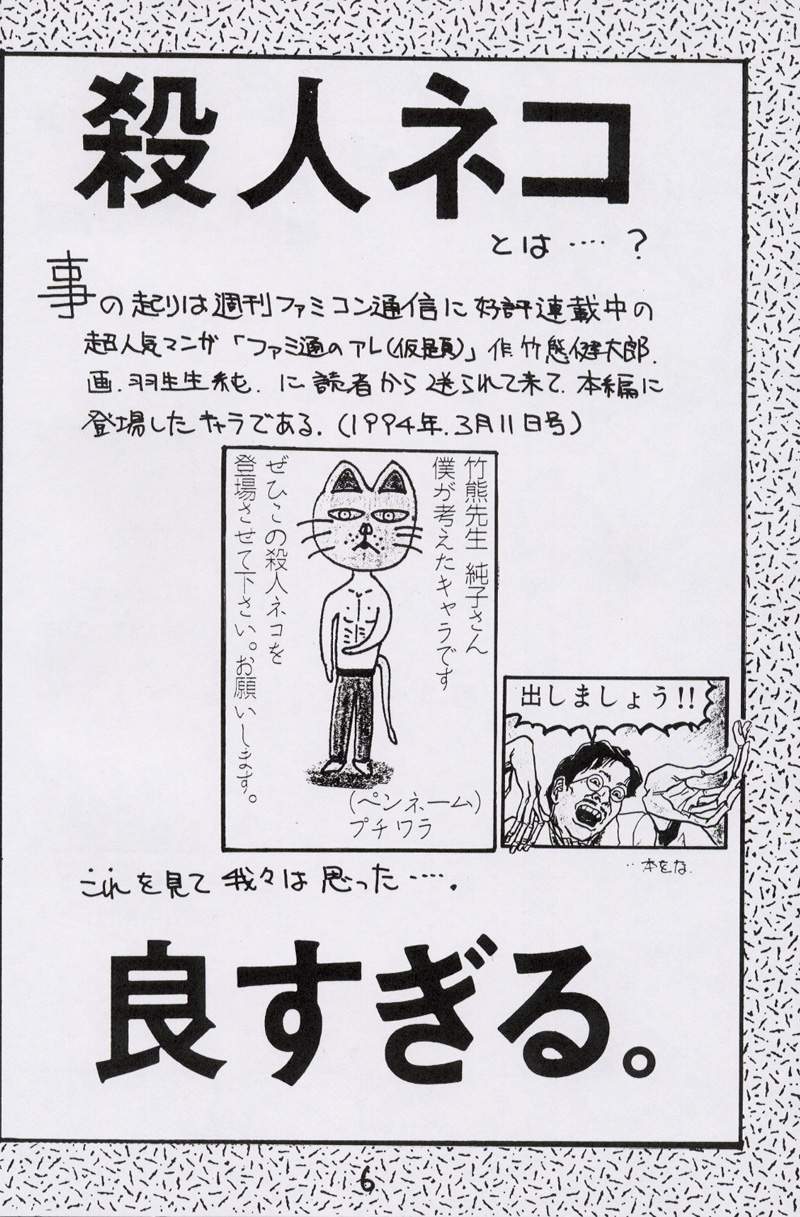 殺人ネコ
とは‥‥?
事の起りは週刊ファミコン通信に好評連載中の
超人気マンガ「ファミ通のアレ(仮題)」作.竹熊健太郎.
画.羽生生純.に読者から送られて来て.本編に
登場したキャラである.(1994年.3月11日号)
竹熊先生 純子さん
僕が考えたキャラです
ぜひこの殺人ネコを
登場させて下さい。お願いします。
(ペンネーム)
プチワラ
出しましょう!!
‥本をな.
これを見て我々は思った‥‥.
良すぎる。
6